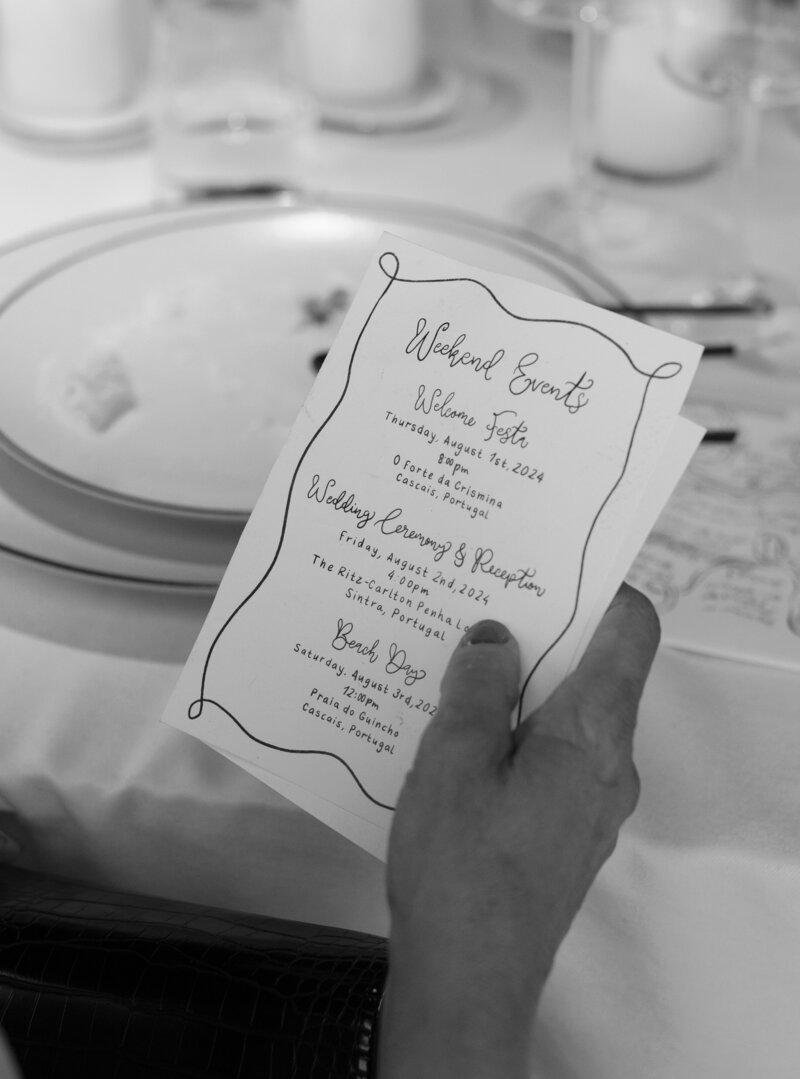 Weekend Events
Welcome Festa
Thursday, August 1st, 2024
8:00pm
O Forte da Crismina
Cascais, Portugal
Wedding Ceremony & Reception
Friday, August 2nd, 2024
4:00pm
The Ritz-Carlton Penha Lo
Sintra, Portugal
Beach Day
Saturday. August 3rd, 202
12:00pm
Praia do Guincho
Cascais, Portugal